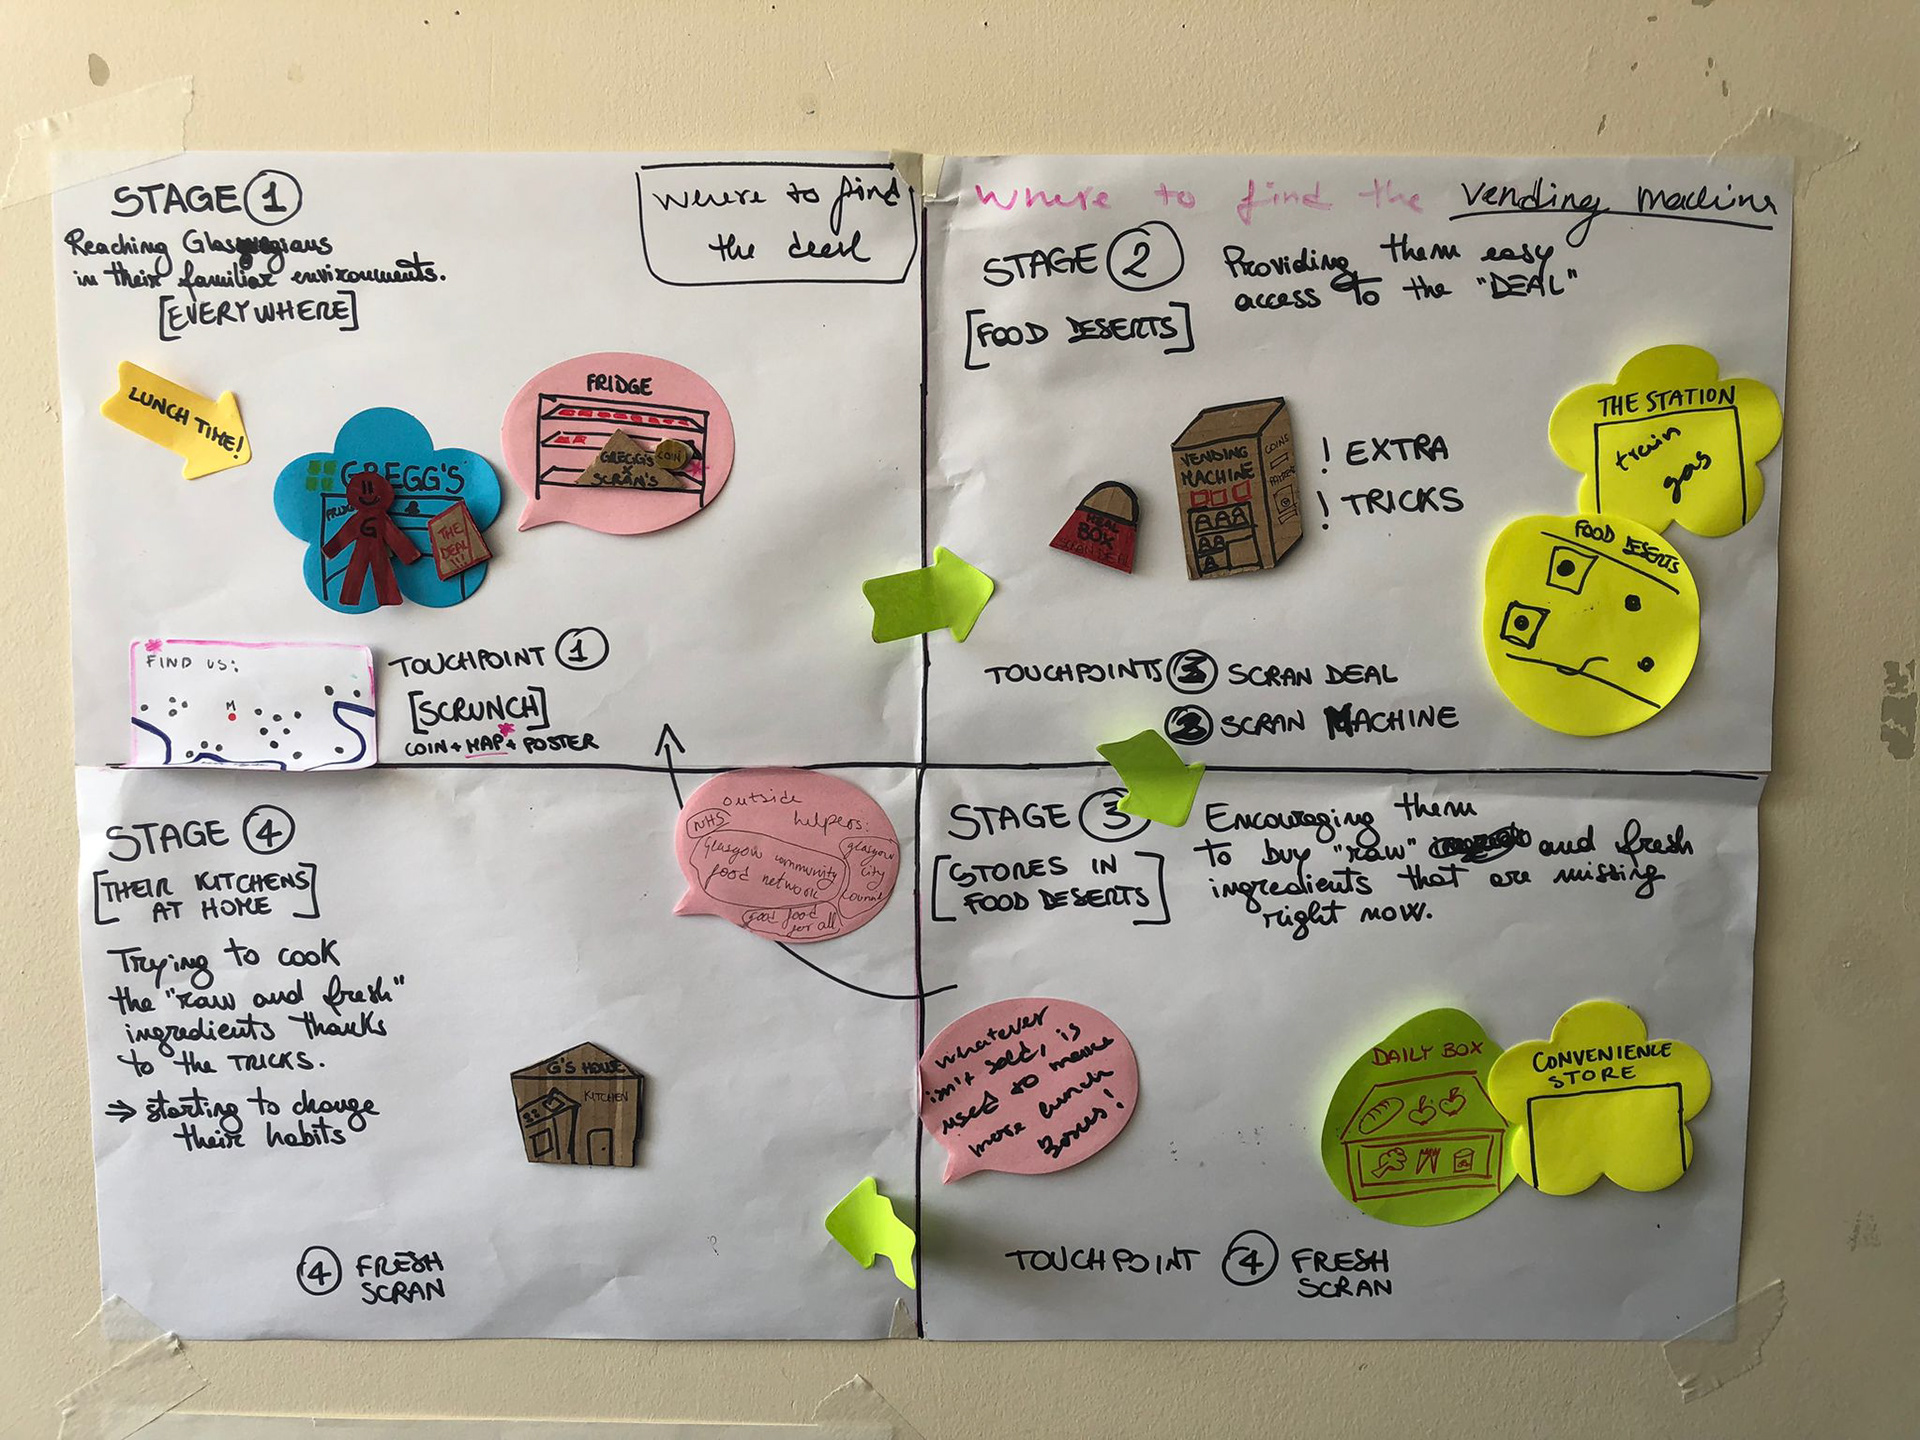 STAGE 1
Reaching Glasgwegians
in their familiar environments.
[EVERYWHERE]
Where to find
the deal
LUNCH TIME!
GREGG'S
FRIDGE
G
THE
DEAL
!!!
FRIDGE
GREGG'S
X
SCRAN'S
COIN
FIND US:
M
TOUCHPOINT 1
[SCRUNCH]
COIN + MAP* + POSTER
Where to find the vending machine
STAGE 2
Providing them easy
access to the "DEAL"
[FOOD DESERTS]
MEAL
BOX
SCRAN DEAL
VENDING
MACHINE
COINS
AAA
AA
A
! EXTRA
! TRICKS
THE STATION
train
gas
FOOD DESERTS
TOUCHPOINTS 3 SCRAN DEAL
2 SCRAN MACHINE
STAGE 4
[THEIR KITCHENS
AT HOME]
Trying to cook
the "raw and fresh"
ingredients thanks
to the TRICKS.
⇒ starting to change
their habits
G'S HOUSE
KITCHEN
4 FRESH
SCRAN
outside
helpers:
NHS
Glasgow community
food network
glasgow
City
Council
Good food
for all
STAGE 3
[STORES IN
FOOD DESERTS]
Encouraging them
to buy "raw" and fresh
ingredients that are missing
right now.
whatever
isn't sold, is
used to make
more lunch
Boxes!
DAILY BOX
CONVENIENCE
STORE
TOUCHPOINT 4 FRESH
SCRAN